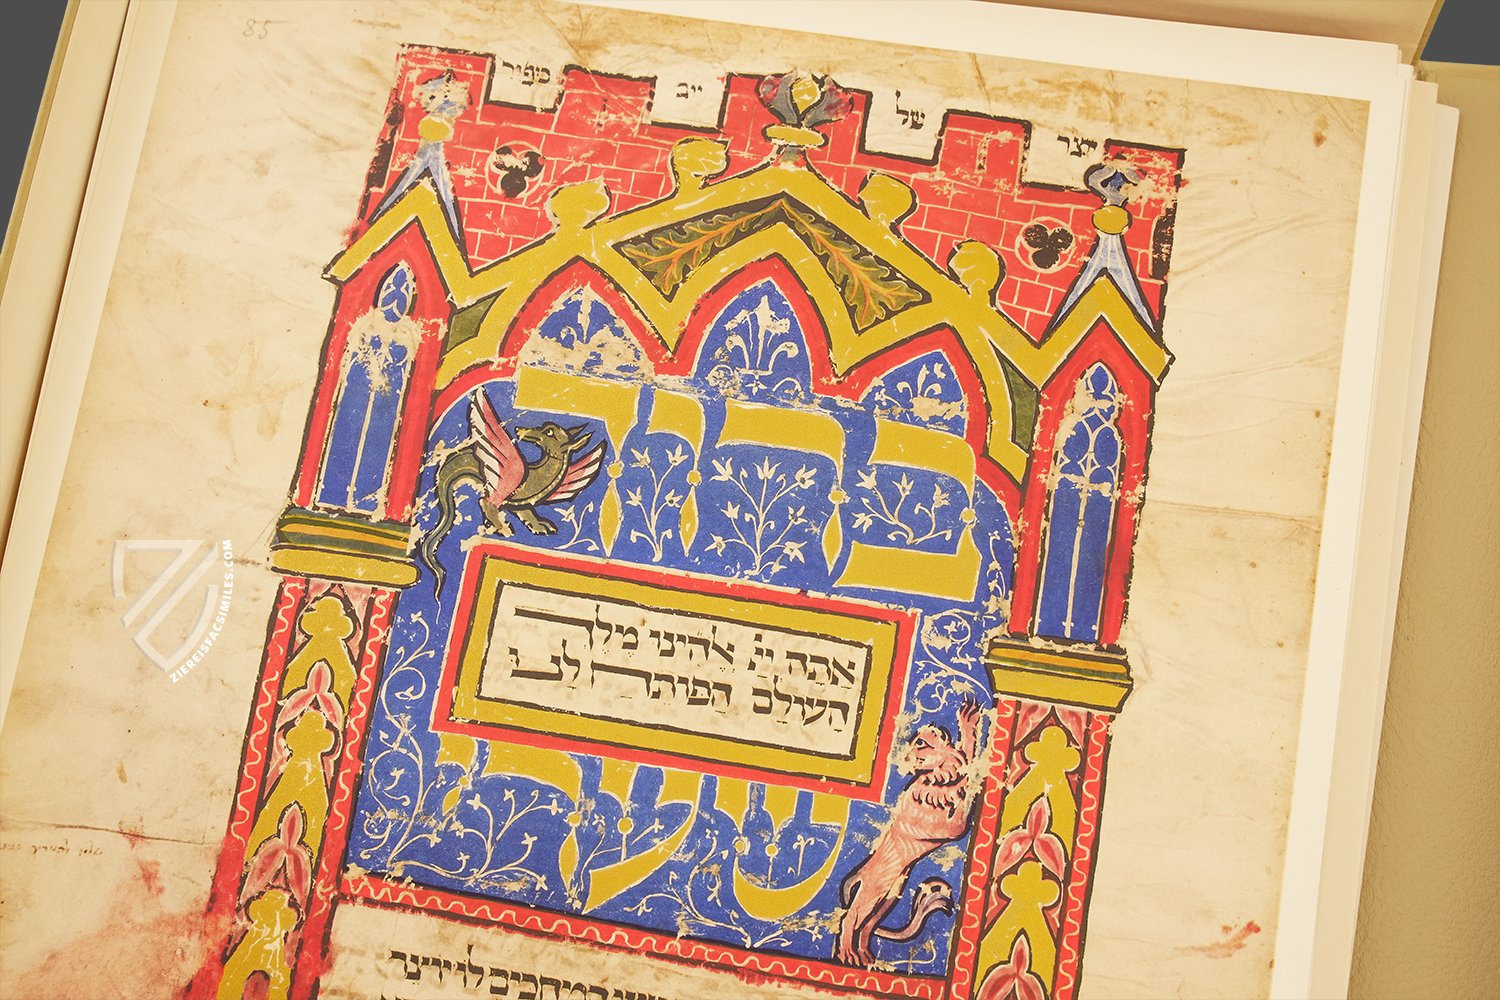 85
יצר של יום כפור
ברוך
אתה יי אלהינו מלך
העולם הפותח לנו
שערי
המחכים
ZIEREISFACSIMILES.COM